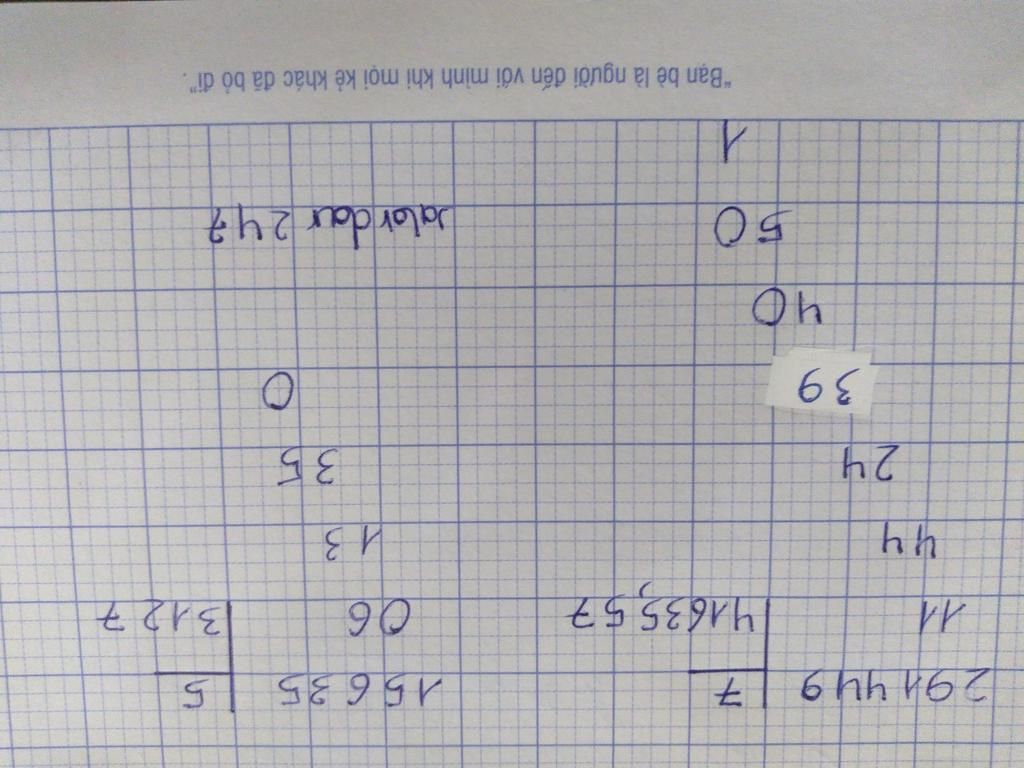 291449 7 15635 5
11 41635,57 06 3127
44 13
24 35
39 0
40
50 247
1
"Bạn bè là người đến với mình khi mọi kẻ khác đã bỏ đi".